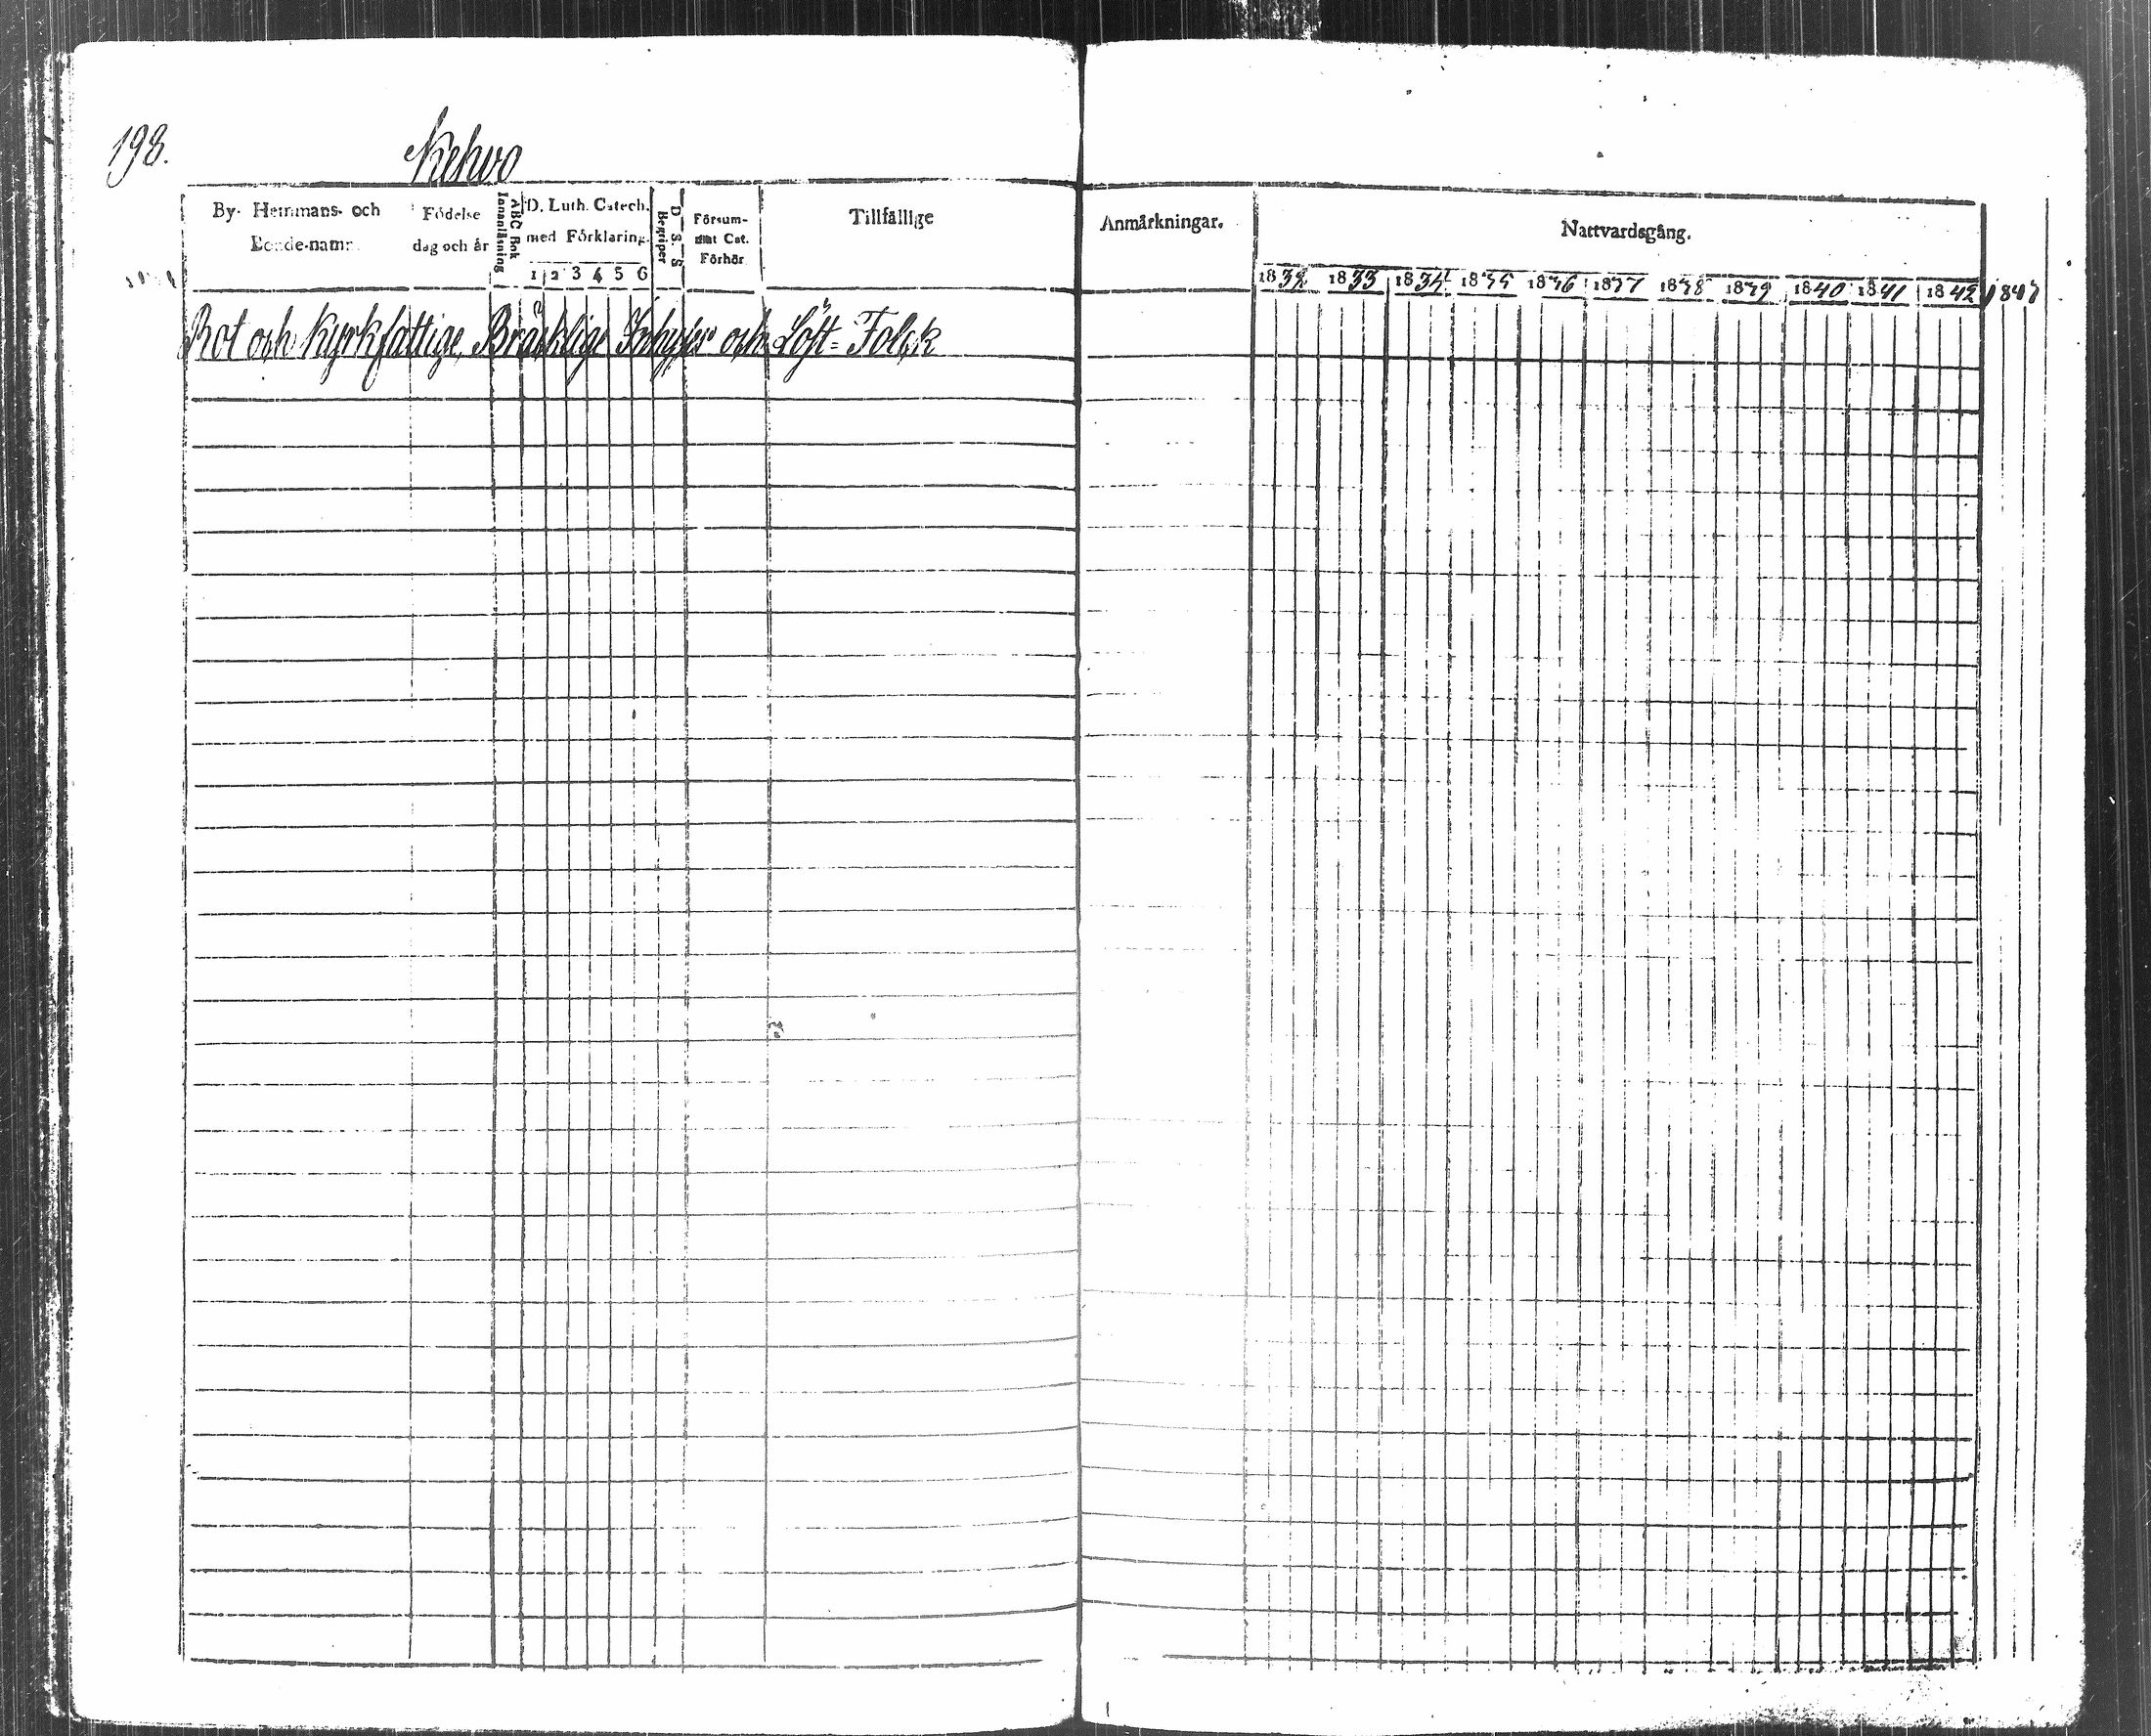 198.
Kehvo
By- Hemmans- och Bonde-namn.
Födelse dag och år
Innanläsning
ABC Bok
D. Luth. Catech. med Förklaring.
1 2 3 4 5 6
Begriper
D. S. S
Försum-
mat Cat.
Förhör
Tillfällige
Anmärkningar.
Nattvardsgång.
1832 1833 1834 1835 1836 1837 1838 1839 1840 1841 1842 1843
Rot och Kyrkfattige, Bräcklige Inhyses och Löst-Folck